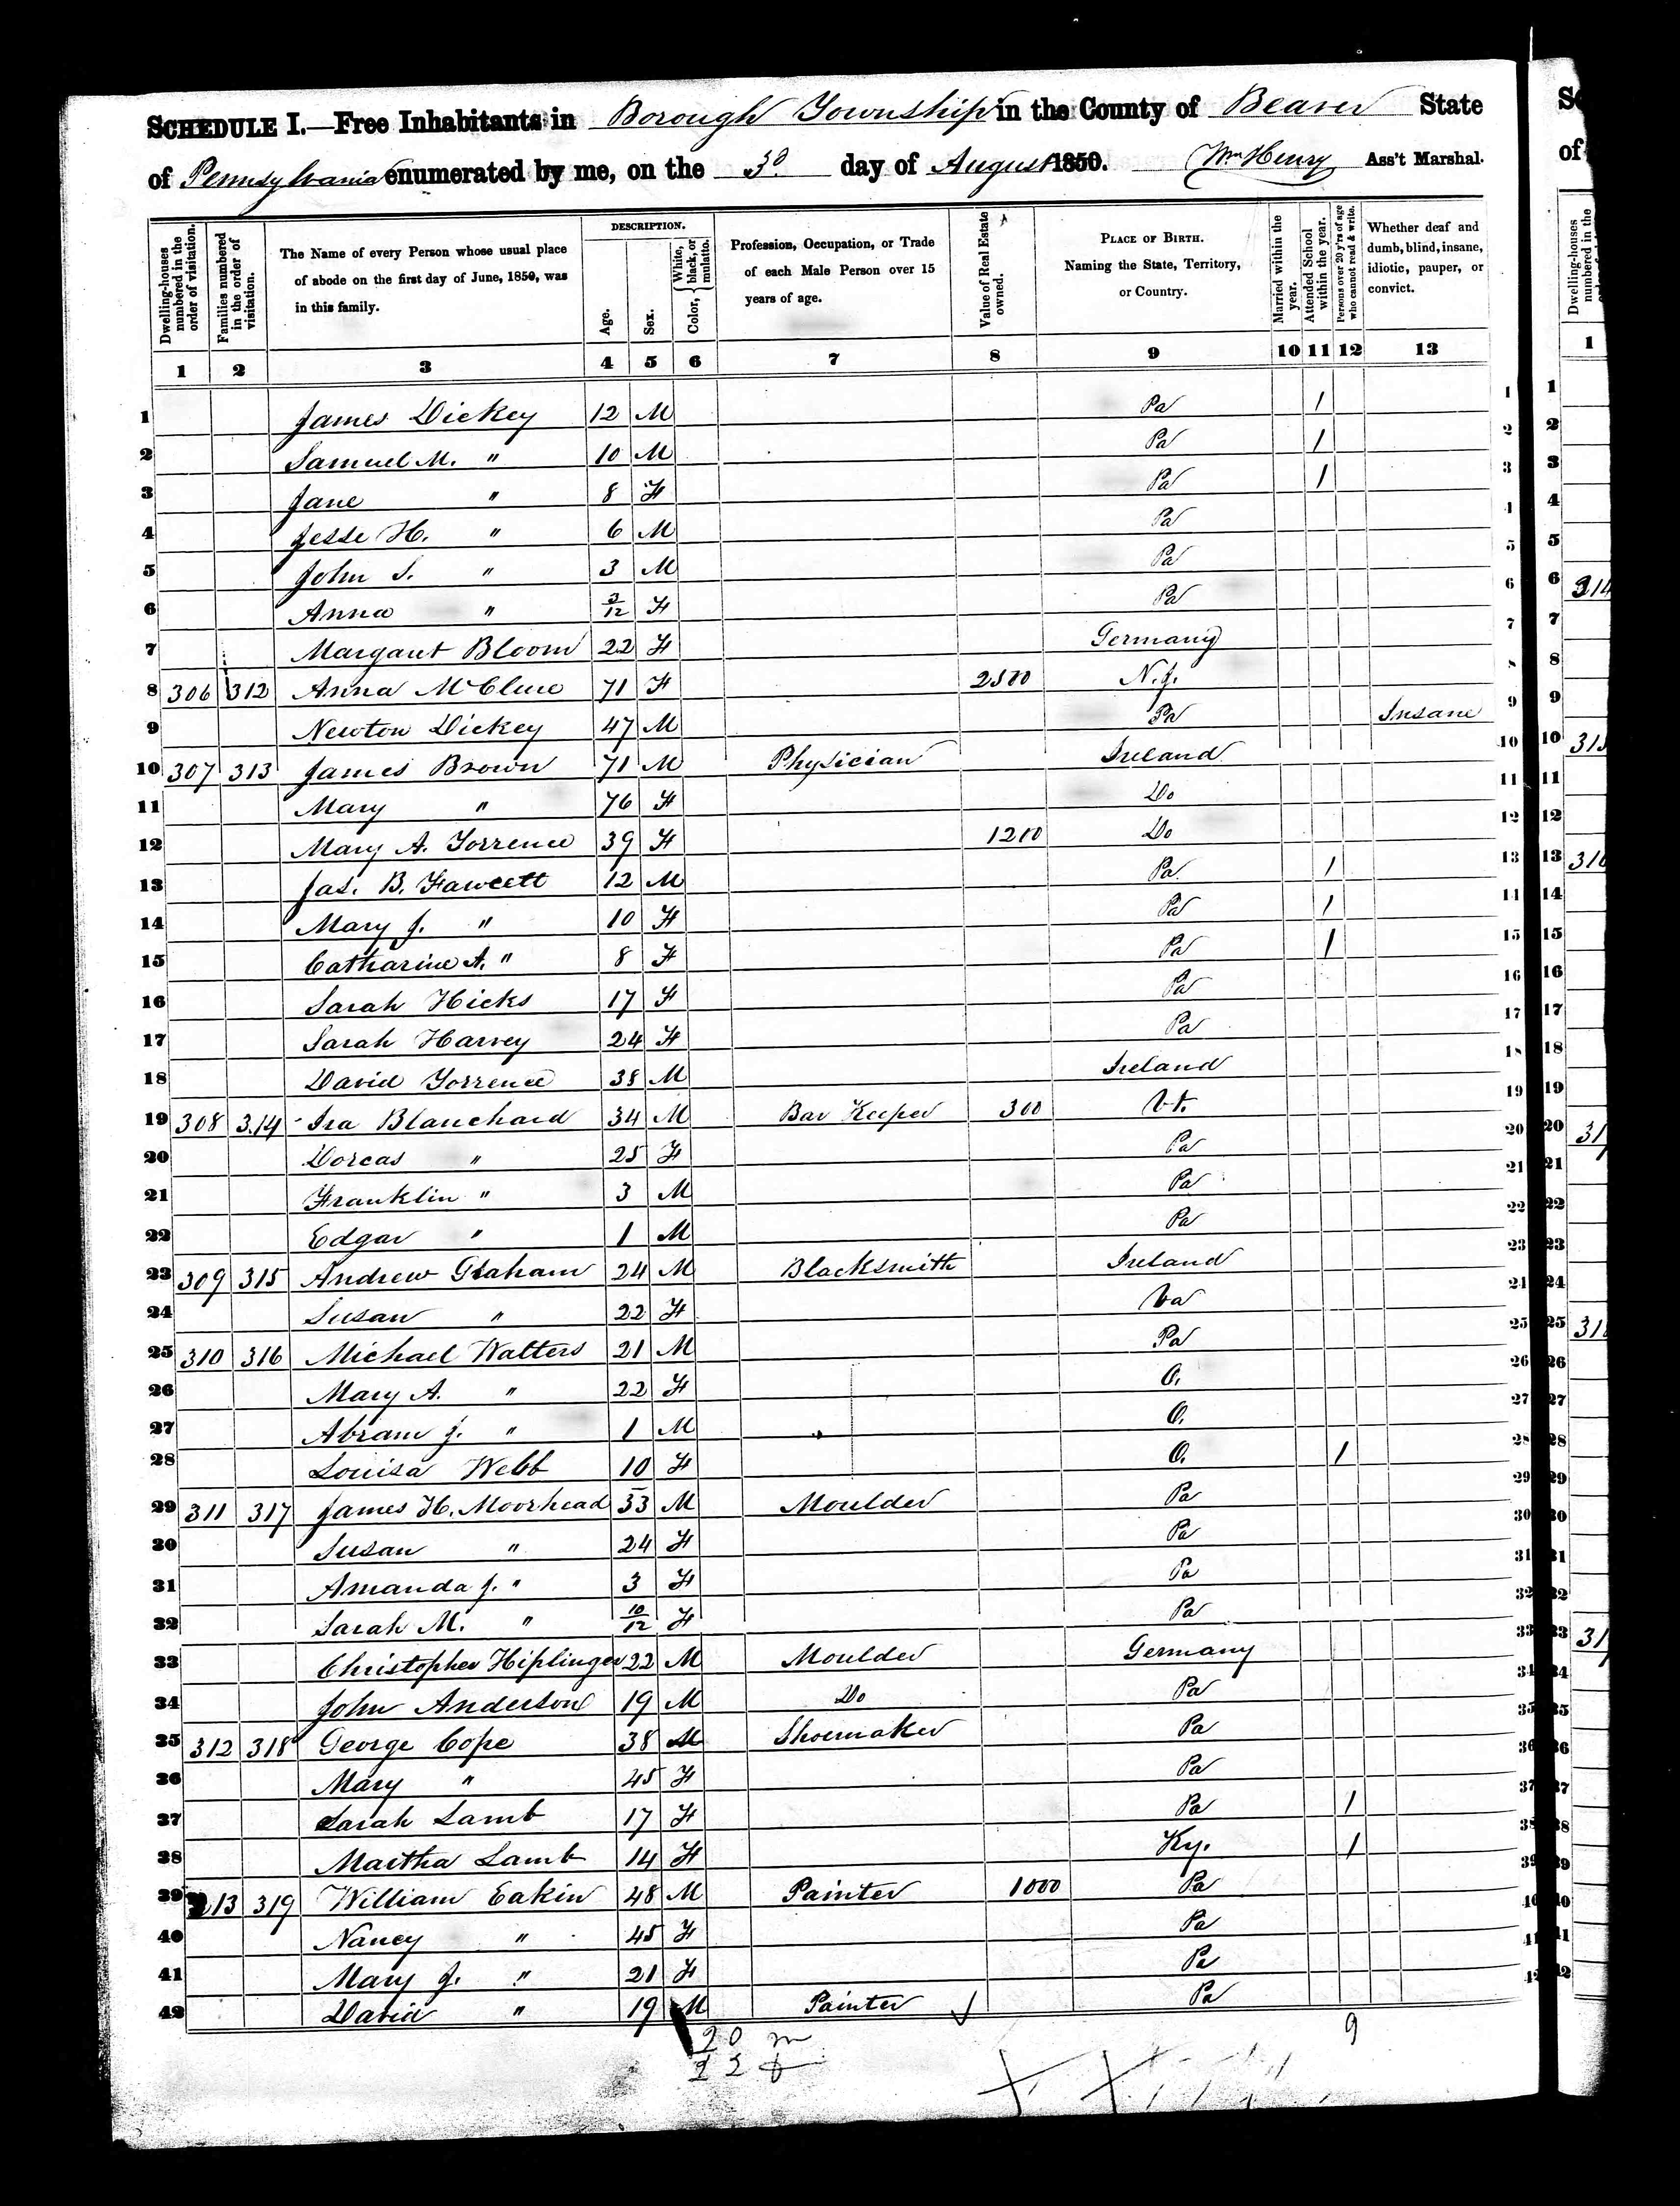 SCHEDULE I.—Free Inhabitants in Borough Township in the County of Beaver State
of Pennsylvania enumerated by me, on the 3d day of August 1850. Wm Henry Ass't Marshal.
Dwelling-houses numbered in the order of visitation.
Families numbered in the order of visitation.
The Name of every Person whose usual place of abode on the first day of June, 1850, was in this family.
DESCRIPTION.
Age.
Sex.
Color, { White, black, or mulatto.
Profession, Occupation, or Trade of each Male Person over 15 years of age.
Value of Real Estate owned.
PLACE OF BIRTH. Naming the State, Territory, or Country.
Married within the year.
Attended School within the year.
Persons over 20 y'rs of age who cannot read & write.
Whether deaf and dumb, blind, insane, idiotic, pauper, or convict.
1 2 3 4 5 6 7 8 9 10 11 12 13
1 James Dickey 12 M Pa 1 1
2 Samuel M. " 10 M Pa 1 2
3 Jane " 8 F Pa 1 3
4 Jesse H. " 6 M Pa 4
5 John S. " 3 M Pa 5
6 Anna " 3/12 F Pa 6
7 Margaret Bloom 22 F Germany 7
8 306 312 Anna McClure 71 F N.J. 8
9 Newton Dickey 47 M Pa Insane 9
10 307 313 James Brown 71 M Physician Ireland 10
11 Mary " 76 F Do 11
12 Mary A. Torrence 39 F 1200 Do 12
13 Jas. B. Fawcett 12 M Pa 1 13
14 Mary J. " 10 F Pa 1 14
15 Catharine A. " 8 F Pa 1 15
16 Sarah Hicks 17 F Pa 16
17 Sarah Harvey 24 F Pa 17
18 David Torrence 38 M Ireland 18
19 308 314 Ira Blanchard 34 M Bar Keeper 300 Vt. 19
20 Dorcas " 25 F Pa 20
21 Franklin " 3 M Pa 21
22 Edgar " 1 M Pa 22
23 309 315 Andrew Graham 24 M Blacksmith Ireland 23
24 Susan " 22 F Va 24
25 310 316 Michael Walters 21 M Pa 25
26 Mary A. " 22 F O. 26
27 Abram J. " 1 M O. 27
28 Louisa Webb 10 F O. 1 28
29 311 317 James H. Moorhead 33 M Moulder Pa 29
30 Susan " 24 F Pa 30
31 Amanda J. " 3 F Pa 31
32 Sarah M. " 10/12 F Pa 32
33 Christopher Hiplinger 22 M Moulder Germany 33
34 John Anderson 19 M Do Pa 34
35 312 318 George Cope 38 M Shoemaker Pa 35
36 Mary " 45 F Pa 36
37 Sarah Lamb 17 F Pa 1 37
38 Martha Lamb 14 F Ky. 1 38
39 313 319 William Eakin 48 M Painter 1000 Pa 39
40 Nancy " 45 F Pa 40
41 Mary J. " 21 F Pa 41
42 David " 19 M Painter Pa 42
20 m
22 f
9